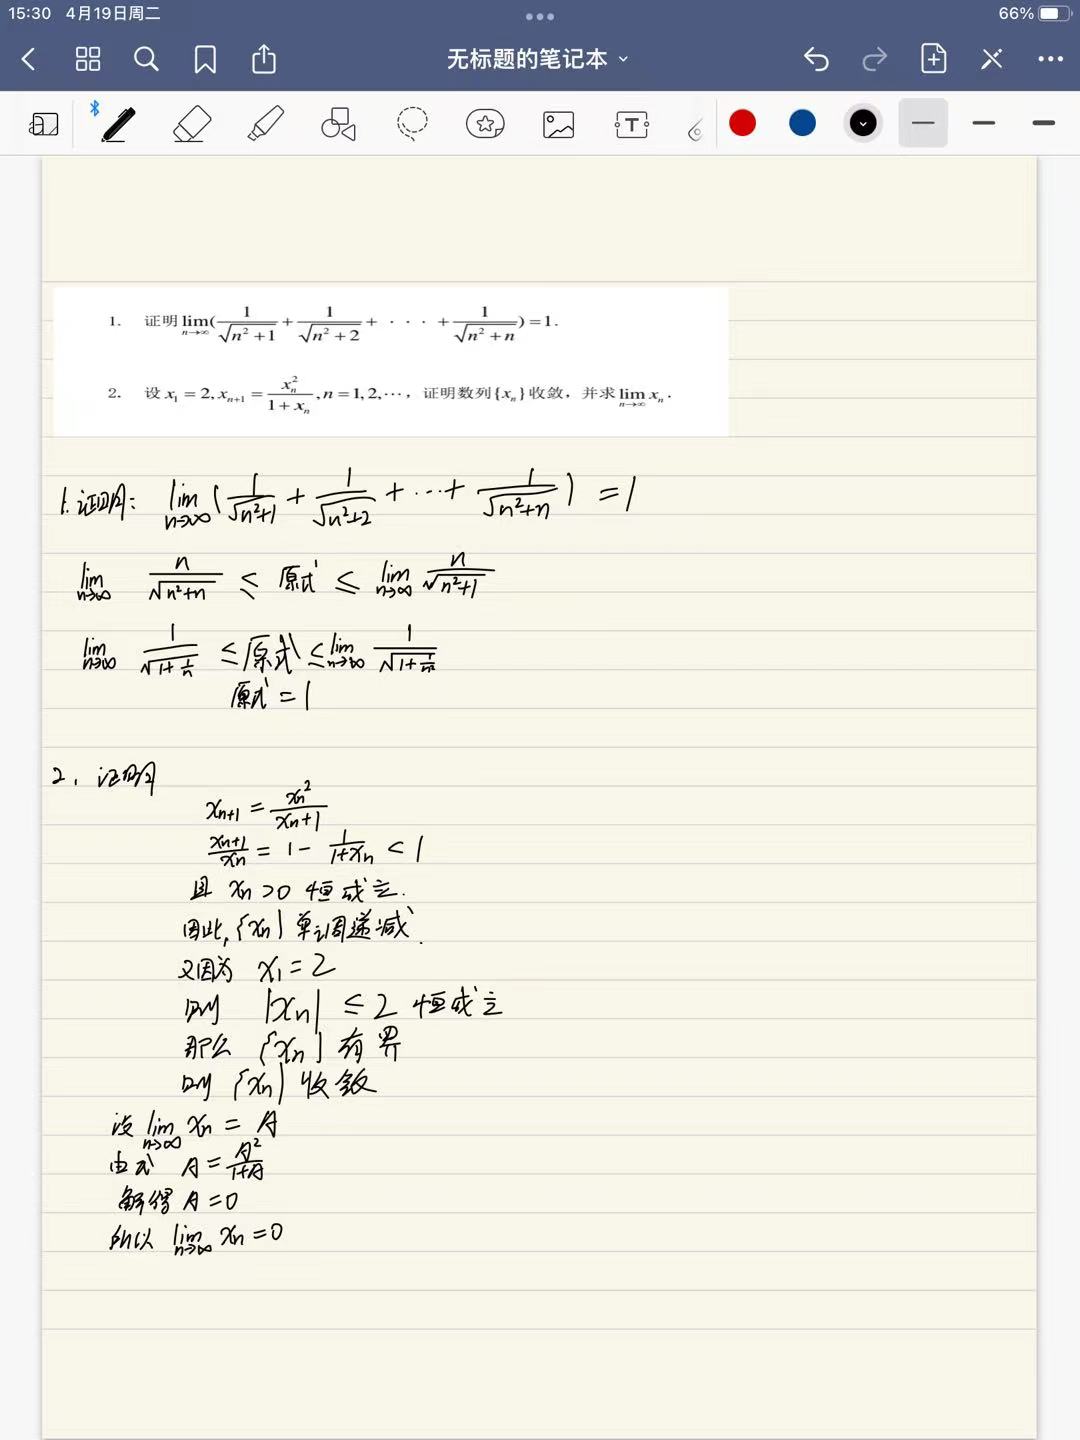 15:30 4月19日周二
66%
无标题的笔记本
1. 证明 lim_{n→∞}(1/√(n²+1) + 1/√(n²+2) + · · · + 1/√(n²+n)) = 1.
2. 设 x₁ = 2, x_{n+1} = x_n²/(1+x_n), n = 1, 2, ⋯, 证明数列{x_n}收敛, 并求 lim_{n→∞} x_n.
1. 证明: lim_{n→∞} (1/√(n²+1) + 1/√(n²+2) + ⋯ + 1/√(n²+n)) = 1
lim_{n→∞} n/√(n²+n) ≤ 原式 ≤ lim_{n→∞} n/√(n²+1)
lim_{n→∞} 1/√(1+1/n) ≤ 原式 ≤ lim_{n→∞} 1/√(1+1/n²)
原式 = 1
2. 证明
x_{n+1} = x_n²/(x_n+1)
x_{n+1}/x_n = 1 - 1/(1+x_n) < 1
且 x_n > 0 恒成立.
因此, {x_n} 单调递减.
又因为 x₁ = 2
则 |x_n| ≤ 2 恒成立
那么 {x_n} 有界
则 {x_n} 收敛
设 lim_{n→∞} x_n = A
由式 A = A²/(1+A)
解得 A = 0
所以 lim_{n→∞} x_n = 0